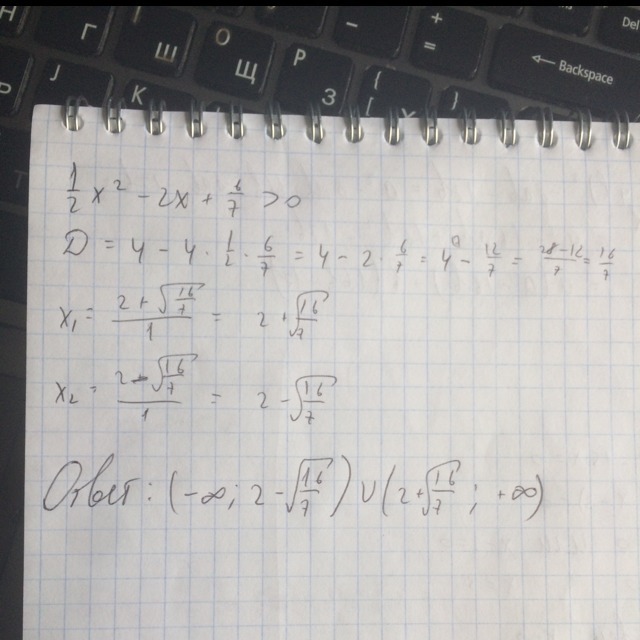 Н Г Ш Щ Р З + = ← Backspace Del
Ж К { [ }
1/2 x² - 2x + 6/7 > 0
D = 4 - 4 · 1/2 · 6/7 = 4 - 2 · 6/7 = 4 - 12/7 = 28-12/7 = 16/7
x₁ = 2+√16/7 / 1 = 2+√16/7
x₂ = 2-√16/7 / 1 = 2-√16/7
Ответ: (-∞; 2-√16/7) ∪ (2+√16/7; +∞)